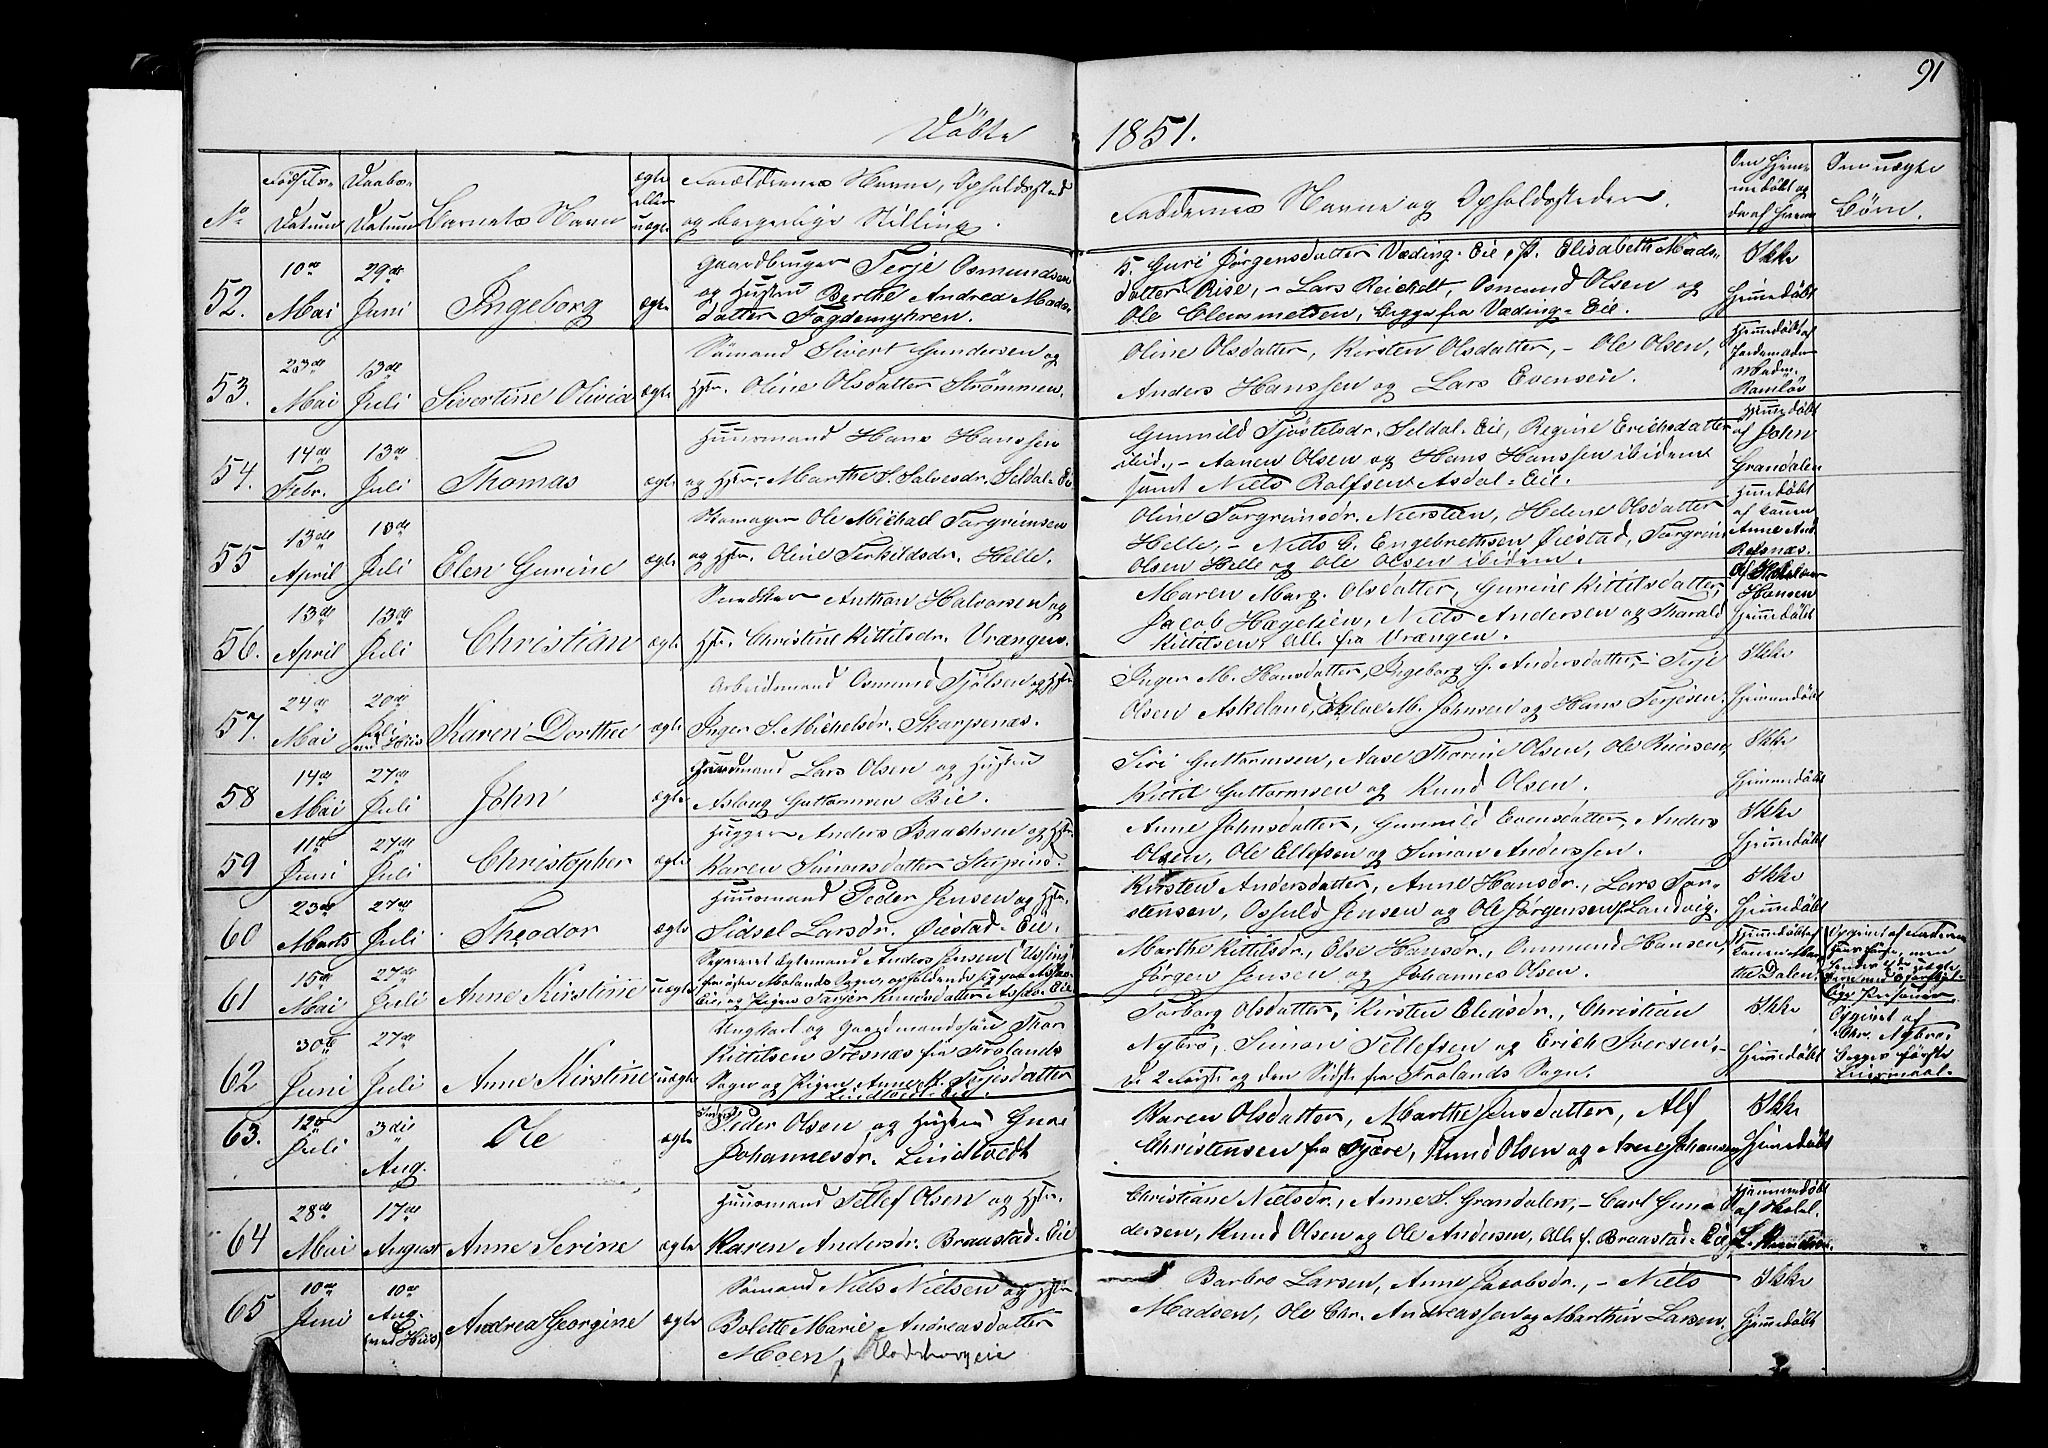 91
Döbte 1851.
No
Födsels-
Datum
Daabs-
Datum
Barnets Navn
ægte
eller
uægte
Forældrenes Navne, Opholdssted
og borgerlige Stilling.
Faddernes Navne og Opholdssteder.
Om Hjem-
medöbt og
Om uægte
Börn.
52.
10de
Mai
29de
Juni
Ingeborg
ægte
Gaardbruger Terje Osmundsen
og Hustru Berthe Andrea Mads-
datter Fogdemyhren.
5. Guri Jörgensdatter Væding-Eie, P. Elisabeth Mads-
datter Rise, - Lars Reichelt, Osmund Olsen og
Ole Clemmetsen, begge fra Væding-Eie.
Ikke
Hjemmedöbt
53.
23de
Mai
13de
Juli
Sivertine Olivia
ægte
Sömand Sivert Gundersen og
Hstr. Oline Olsdatter Strömmen.
Oline Olsdatter, Kirsten Olsdatter, - Ole Olsen,
Anders Hanssen og Lars Evensen.
Hjemmedöbt af
Jordemoder
Madm.
54.
14de
Febr.
13de
Juli
Thomas
ægte
Huusmand Hans Hanssen
og Hstr. Marthe S. Salvesdr. Seldal-Eie
Gunnild Tjöstelsdr. Seldal-Eie, Regine Erichsdatter
ibid., - Aanen Olsen og Hans Hanssen ibidem
samt Niels Rolfsen Asdal-Eie.
Hjemmedöbt
af John
Grandalen
55
13de
April
13de
Juli
Elen Gurine
ægte
Skomager Ole Michael Torgrimsen
og Hstr. Oline Terkildsdr. Helle.
Oline Torgrimsdr. Niersteen, Helene Olsdatter
Helle, - Niels C. Engebrethsen Öiestad, Torgrim
Olsen Helle og Ole Olsen ibidem.
Hjemmedöbt
af Konen
Anne And.
Refsnæs.
56.
13de
April
13de
Juli
Christian
ægte
Snedker Anthon Halvorsen og
Hstr. Christine Kittilsdr. Vrængen.
Maren Marg. Olsdatter, Gurine Kittilsdatter,
Jacob Hægelien, Niels Andersen og Tharald
Kittilsen, Alle fra Vrængen.
Hansen
Hjemmedöbt
57.
24de
Mai
20de
Juli
ved Hiis
Karen Dorthee
ægte
Arbeidsmand Osmund Tjölsen og Hstr.
Inger S. Michelsdr. Skarpenæs.
Inger M. Hansdatter, Ingeborg G. Andersdatter, - Terje
Olsen Askeland, M. Johnsen og Hans Terjesen.
Ikke
Hjemmedöbt
58
14de
Mai
27de
Juli
John
ægte
Huusmand Lars Olsen og Hustru
Aslaug Guttormsen Bie.
Siri Guttormsen, Aase Thorine Olsen, Ole Reiersen,
Kittil Guttormsen og Knud Olsen.
Ikke
Hjemmedöbt
59
11te
Juni
27de
Juli
Christopher
ægte
Hugger Anders Isachsen og Hstr.
Karen Simonsdatter
Anne Johnsdatter, Gunnild Evensdatter, Anders
Olsen, Ole Ellefsen og Simon Anderssen.
Ikke
Hjemmedöbt
60
23de
Marts
27de
Juli
Theodor
ægte
Huusmand Peder Jensen og Hstr.
Sidsel Larsdr. Öiestad-Eie.
Kirsten Andersdatter, Anne Hansdr., Lars Tor-
stensen, Osfuld Jensen og Ole Jörgensen f. Landvig.
Ikke
Hjemmedöbt
61
15de
Mai
27de
Juli
Anne Kirstine
uægte
Separeret Ægtemand Anders Jensen
fra östre Molands Sogn, opholdende sig paa
Eie, og Pigen Knudsdatter
Marthe Kittilsdr., Else Hansdr., Osmund Hansen,
Jörgen Jensen og Johannes Olsen.
Hjemmedöbt af
Konen Mar-
the Dalen.
62
30te
Juni
27de
Juli
Anne Kirstine
uægte
Ungkarl og Gaardmandssön Thor
Kittilsen Tresnæs fra Frolands
Sogn og Pigen Anne K. Terjesdatter
Torborg Olsdatter, Kirsten Eliasdr., Christian
Nybro, Simon Tellefsen og Erich Iversen, -
de 2 Förste og den Sidste fra Frolands Sogn.
Ikke
Hjemmedöbt
Opgivet af
Chr. Nybro.
Begges förste
Leiermaal.
63.
12te
Juli
3die
Aug.
Ole
ægte
Peder Olsen og Hustru Guri
Johannesdr. Lindtvedt
Karen Olsdatter, Marthe Jensdatter, Alf
Christensen fra Tjære, Knud Olsen og Arne Johansen
Ikke
Hjemmedöbt
64
28de
Mai
17de
August
Anne Serine
ægte
Huusmand Tellef Olsen og Hstr.
Karen Andersdr. Braastad-Eie
Christiane Nielsdr., Anne S. Grandalen, - Carl Gun-
dersen, Knud Olsen og Ole Andersen, Alle f. Braastad-Eie
Hjemmedöbt
af Skolel.
65
10de
Juni
10de
Aug.
(ved Hiis)
Andrea Georgine
ægte
Sömand Niels Nielsen og Hstr.
Bolette Marie Andreasdatter
Moen,
Barbro Larsen, Anne Jacobsdr., - Niels
Madsen, Ole Chr. Andreassen og Marthin Larsen.
Ikke
Hjemmedöbt